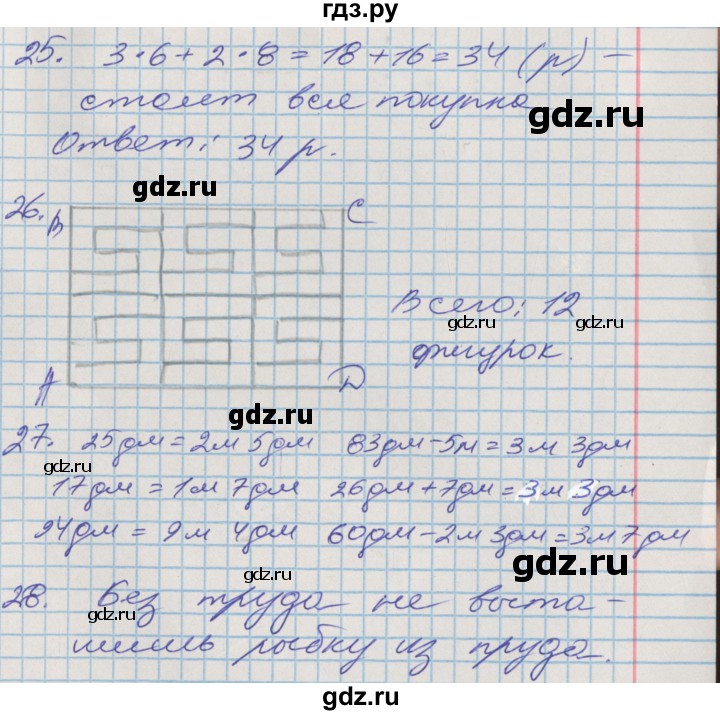 гдз.ру
25. 3·6+2·8=18+16=34 (р) –
стоит вся покупка
gdz.ru
Ответ: 34 р.
gdz.ru
26. В С
Всего: 12
gdz.ru gdz.ru
фигурок.
А D
gdz.ru
27. 25дм=2м 5дм 83дм-5м=3м 3дм
gdz.ru
17дм=1м 7дм 26дм+7дм=3м 3дм
94дм=9м 4дм 60дм-2м 3дм=3м 7дм
gdz.ru gdz.ru
28. Без труда не выта-
gdz.ru
щишь рыбку из пруда.
gdz.ru
gdz.ru